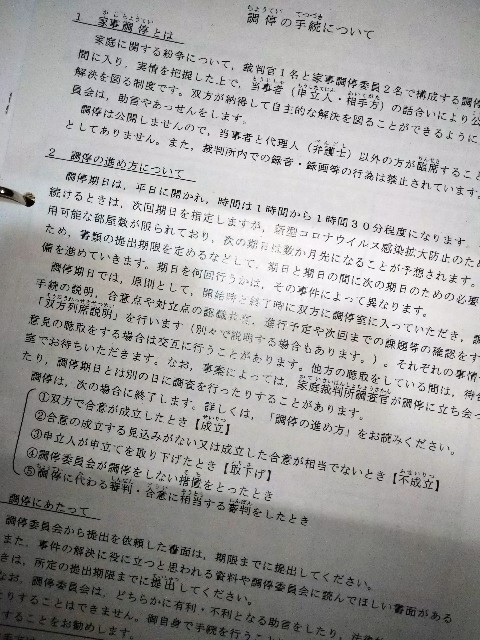 調停の手続について
1 家事調停とは
家庭に関する紛争について，裁判官1名と家事調停委員2名で構成する調停
間に入り，実情を把握した上で，当事者（申立人・相手方）の話合いにより公
解決を図る制度です。双方が納得して自主的な解決を図ることができるように
員会は，助言やあっせんをします。
調停は公開しませんので，当事者と代理人（弁護士）以外の方が臨席すること
としてありません。また，裁判所内での録音・録画等の行為は禁止されています。
2 調停の進め方について
調停期日は，平日に開かれ，時間は1時間から1時間30分程度になります。
続けるときは，次回期日を指定しますが，新型コロナウイルス感染拡大防止のため
用可能な部屋数が限られており，次の期日は数か月先になることが予想されます。
ため，書類の提出期限を定めるなどして，期日と期日の間に次の期日のための必要
備を進めていきます。期日を何回行うかは，その事件によって異なります。
調停期日では，原則として，開始時と終了時に双方に調停室に入っていただき，調
手続の説明，合意点や対立点の認識共有，進行予定や次回までの課題等の確認をす
「双方列席説明」を行います（別々で説明する場合もあります。）。それぞれの事情や
意見の聴取をする場合は交互に行うことがあります。他方の聴取をしている間は，待合
室でお待ちいただきます。なお，事案によっては，家庭裁判所調査官が期日に立ち会っ
たり，調停期日とは別の日に調査を行ったりすることがあります。
調停は，次の場合に終了します。詳しくは，「調停の進め方」をお読みください。
①双方で合意が成立したとき【成立】
②合意の成立する見込みがない又は成立した合意が相当でないとき【不成立】
③申立人が申立てを取り下げたとき【取下げ】
④調停委員会が調停をしない措置をとったとき
⑤調停に代わる審判・合意に相当する審判をしたとき
調停にあたって
調停委員会から提出を依頼した書面は，期限までに提出してください。
また，事件の解決に役に立つと思われる資料や調停委員会に読んでほしい書面がある
きは，所定の提出期限までに提出してください。
なお，調停委員会は，どちらかに有利・不利となる助言をしたり，法律
たりすることはできません。御自身で手続を行うこと
することをお勧めします。